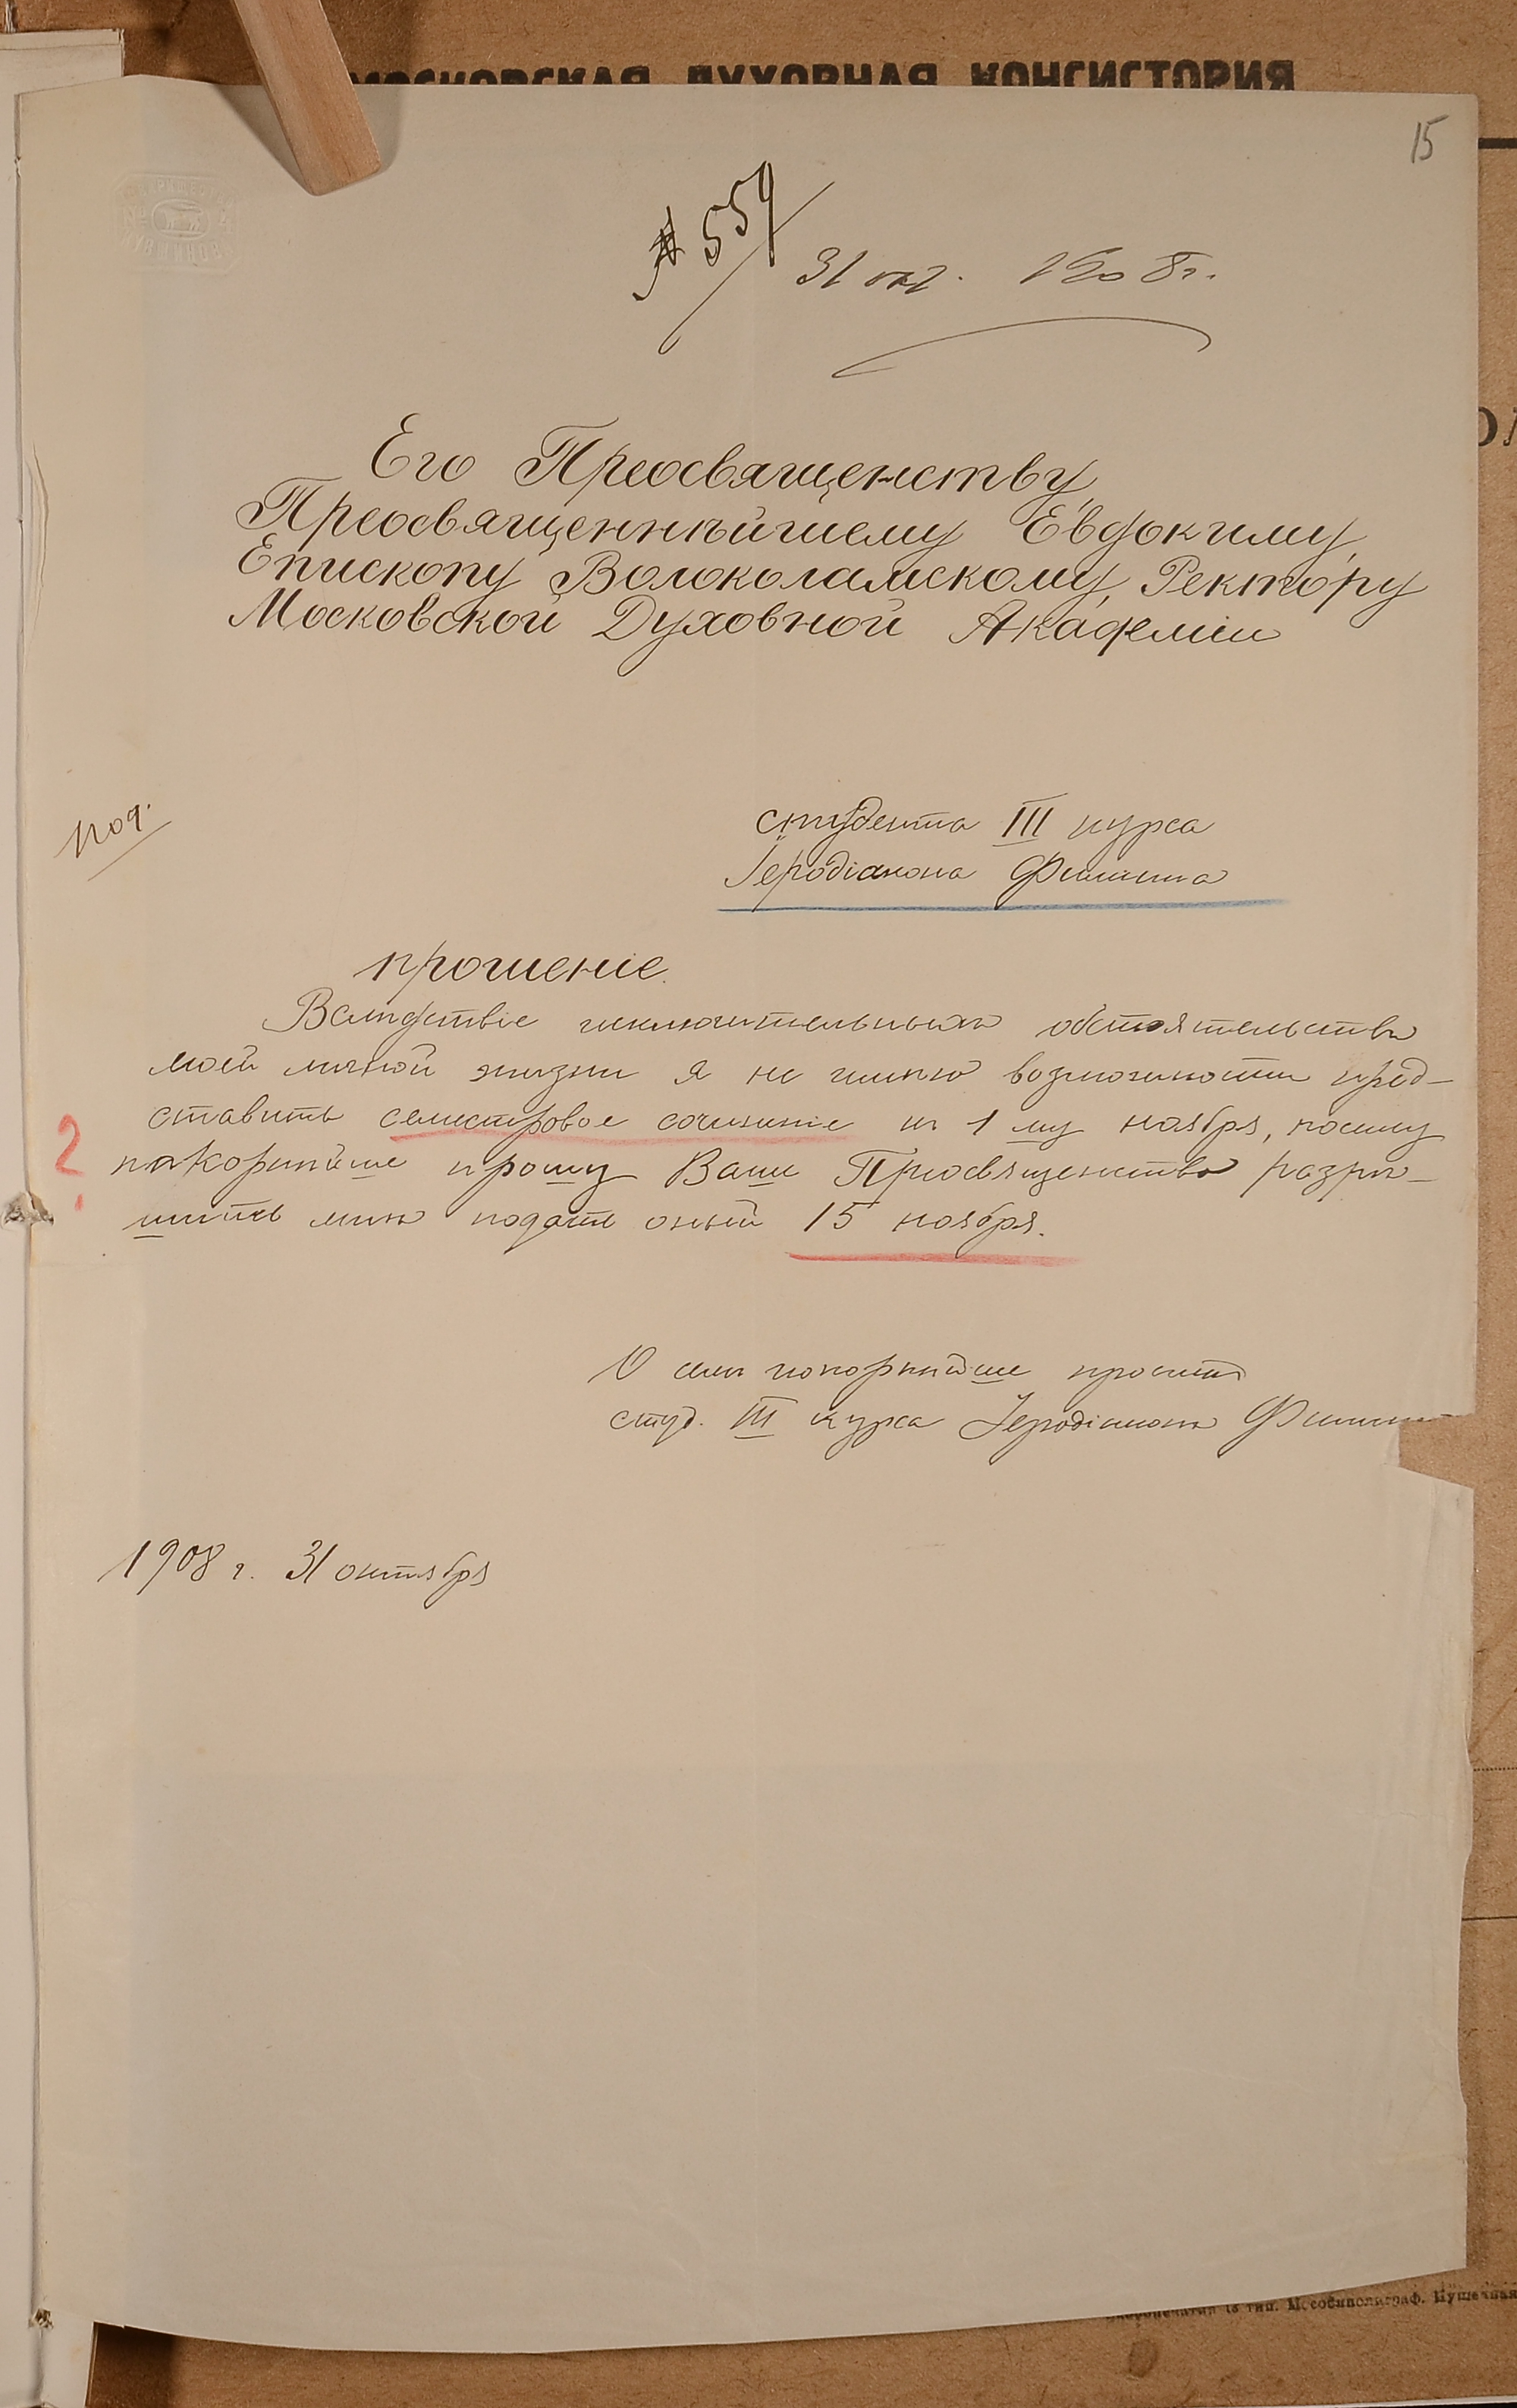 МОСКОВСКАЯ ДУХОВНАЯ КОНСИСТОРИЯ
15
№ 559
31 окт. 1908 г.
Его Преосвященству,
Преосвященнѣйшему Евдокиму,
Епископу Волоколамскому, Ректору
Московской Духовной Академіи
студента III курса
Іеродіакона Филиппа
прошеніе.
Вслѣдствіе исключительныхъ обстоятельствъ
моей личной жизни я не имѣю возможности пред-
ставить семестровое сочиненіе къ 1 му ноября, посему
покорнѣйше прошу Ваше Преосвященство разрѣ-
шить мнѣ подать оный 15 ноября.
?
О семъ покорнѣйше проситъ
студ. III курса Іеродіаконъ Филиппъ
1908 г. 31 октября